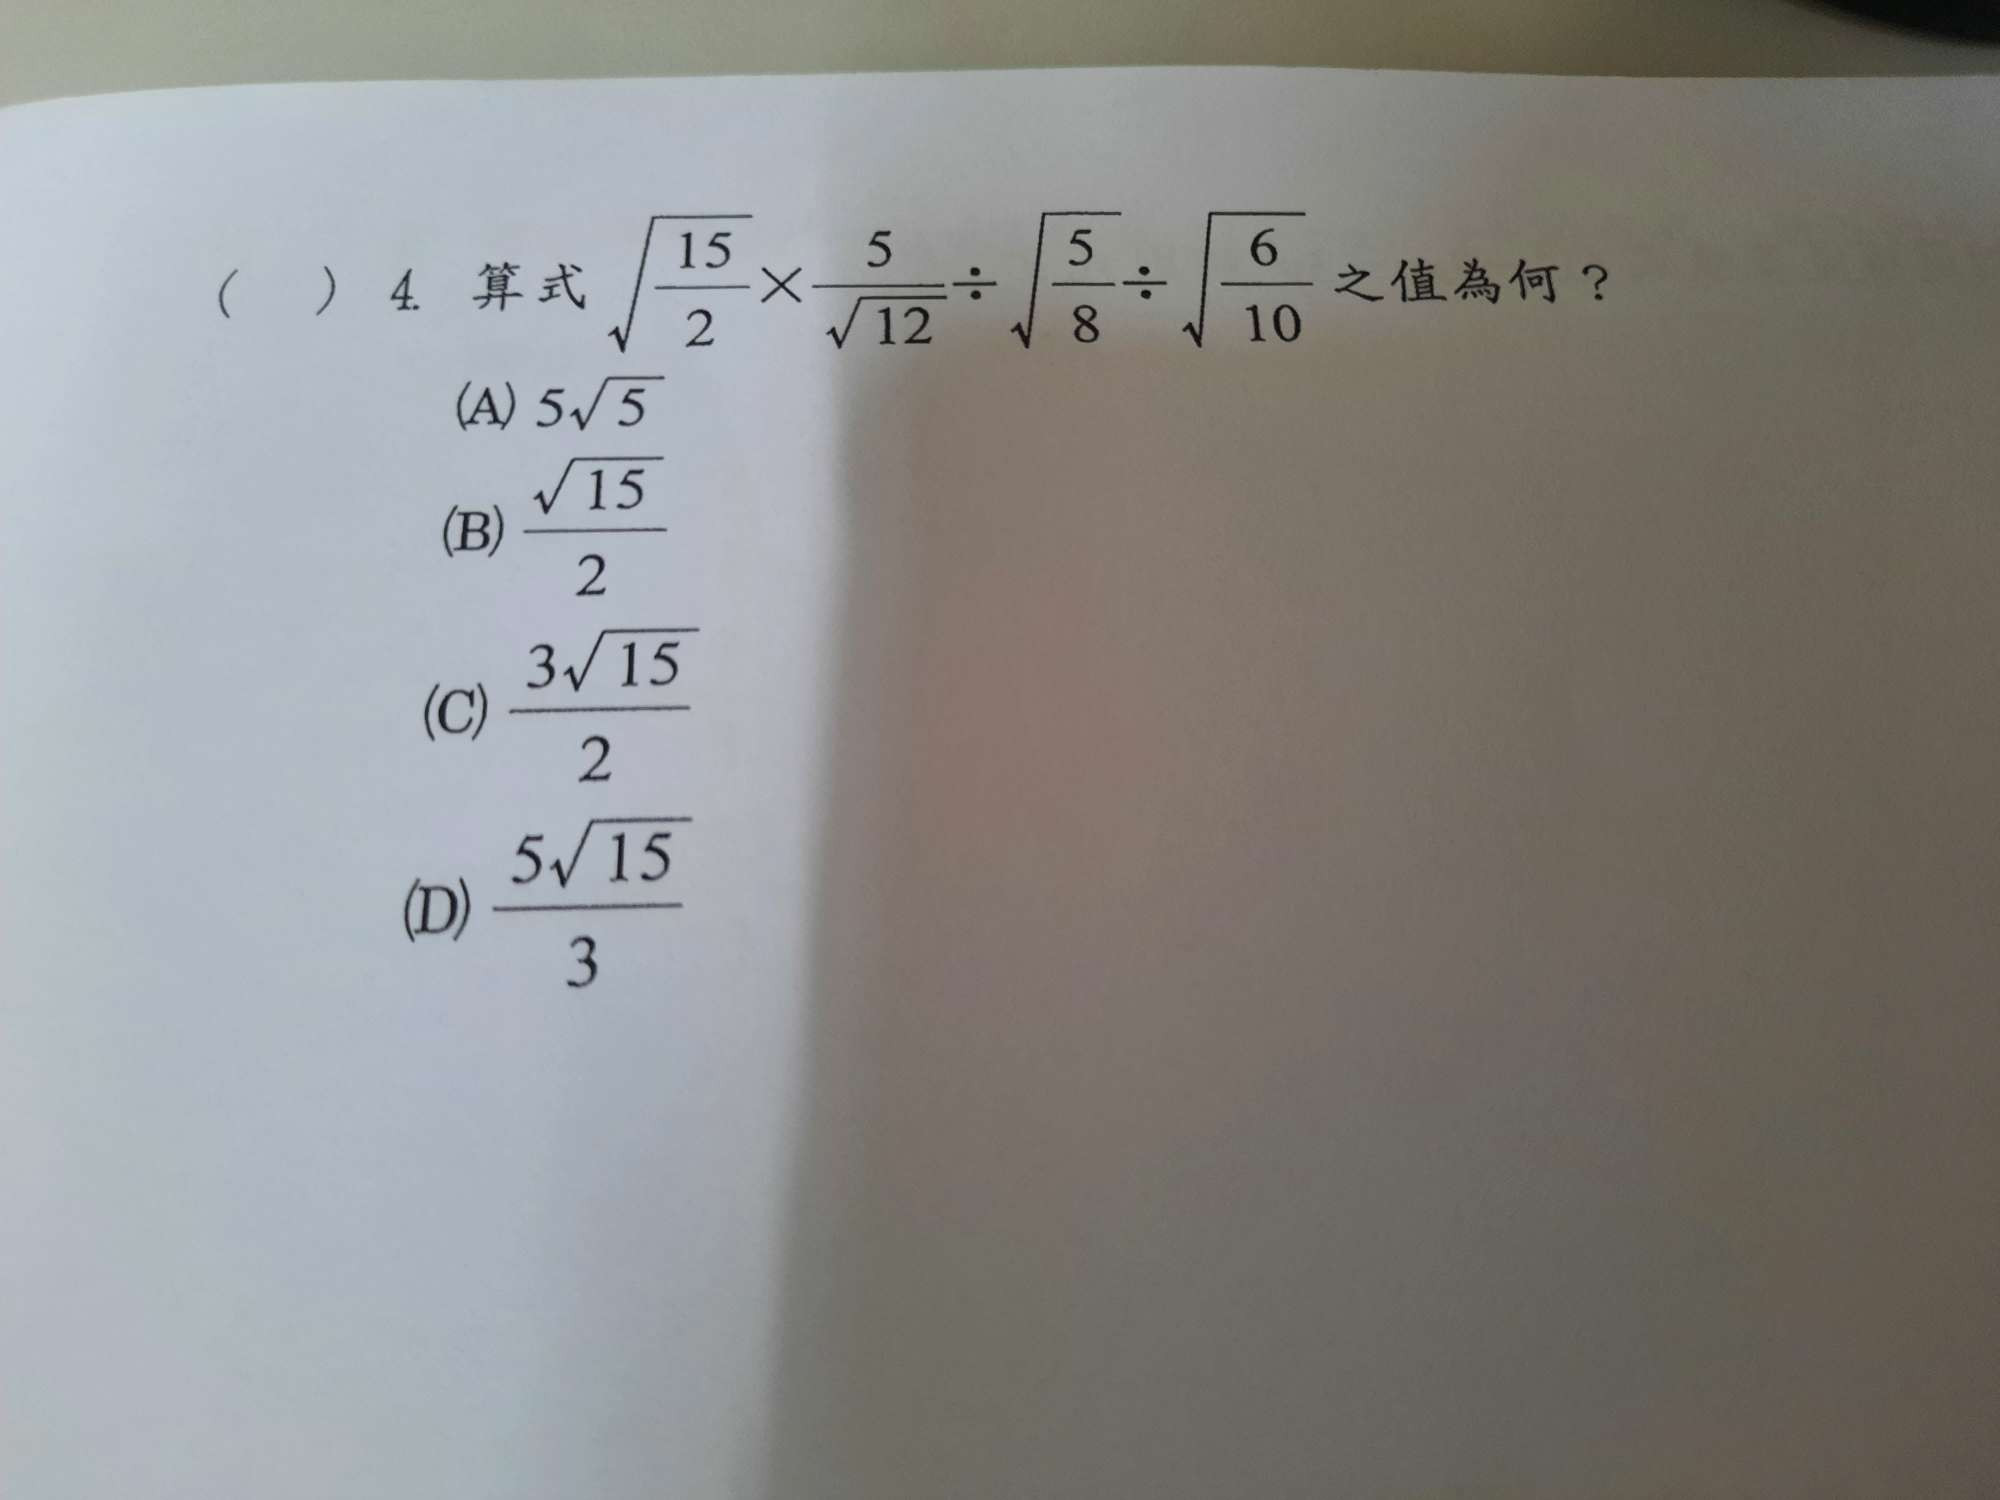 ( ) 4. 算式 √(15/2) × 5/√12 ÷ √(5/8) ÷ √(6/10) 之值為何？
(A) 5√5
(B) √15/2
(C) 3√15/2
(D) 5√15/3